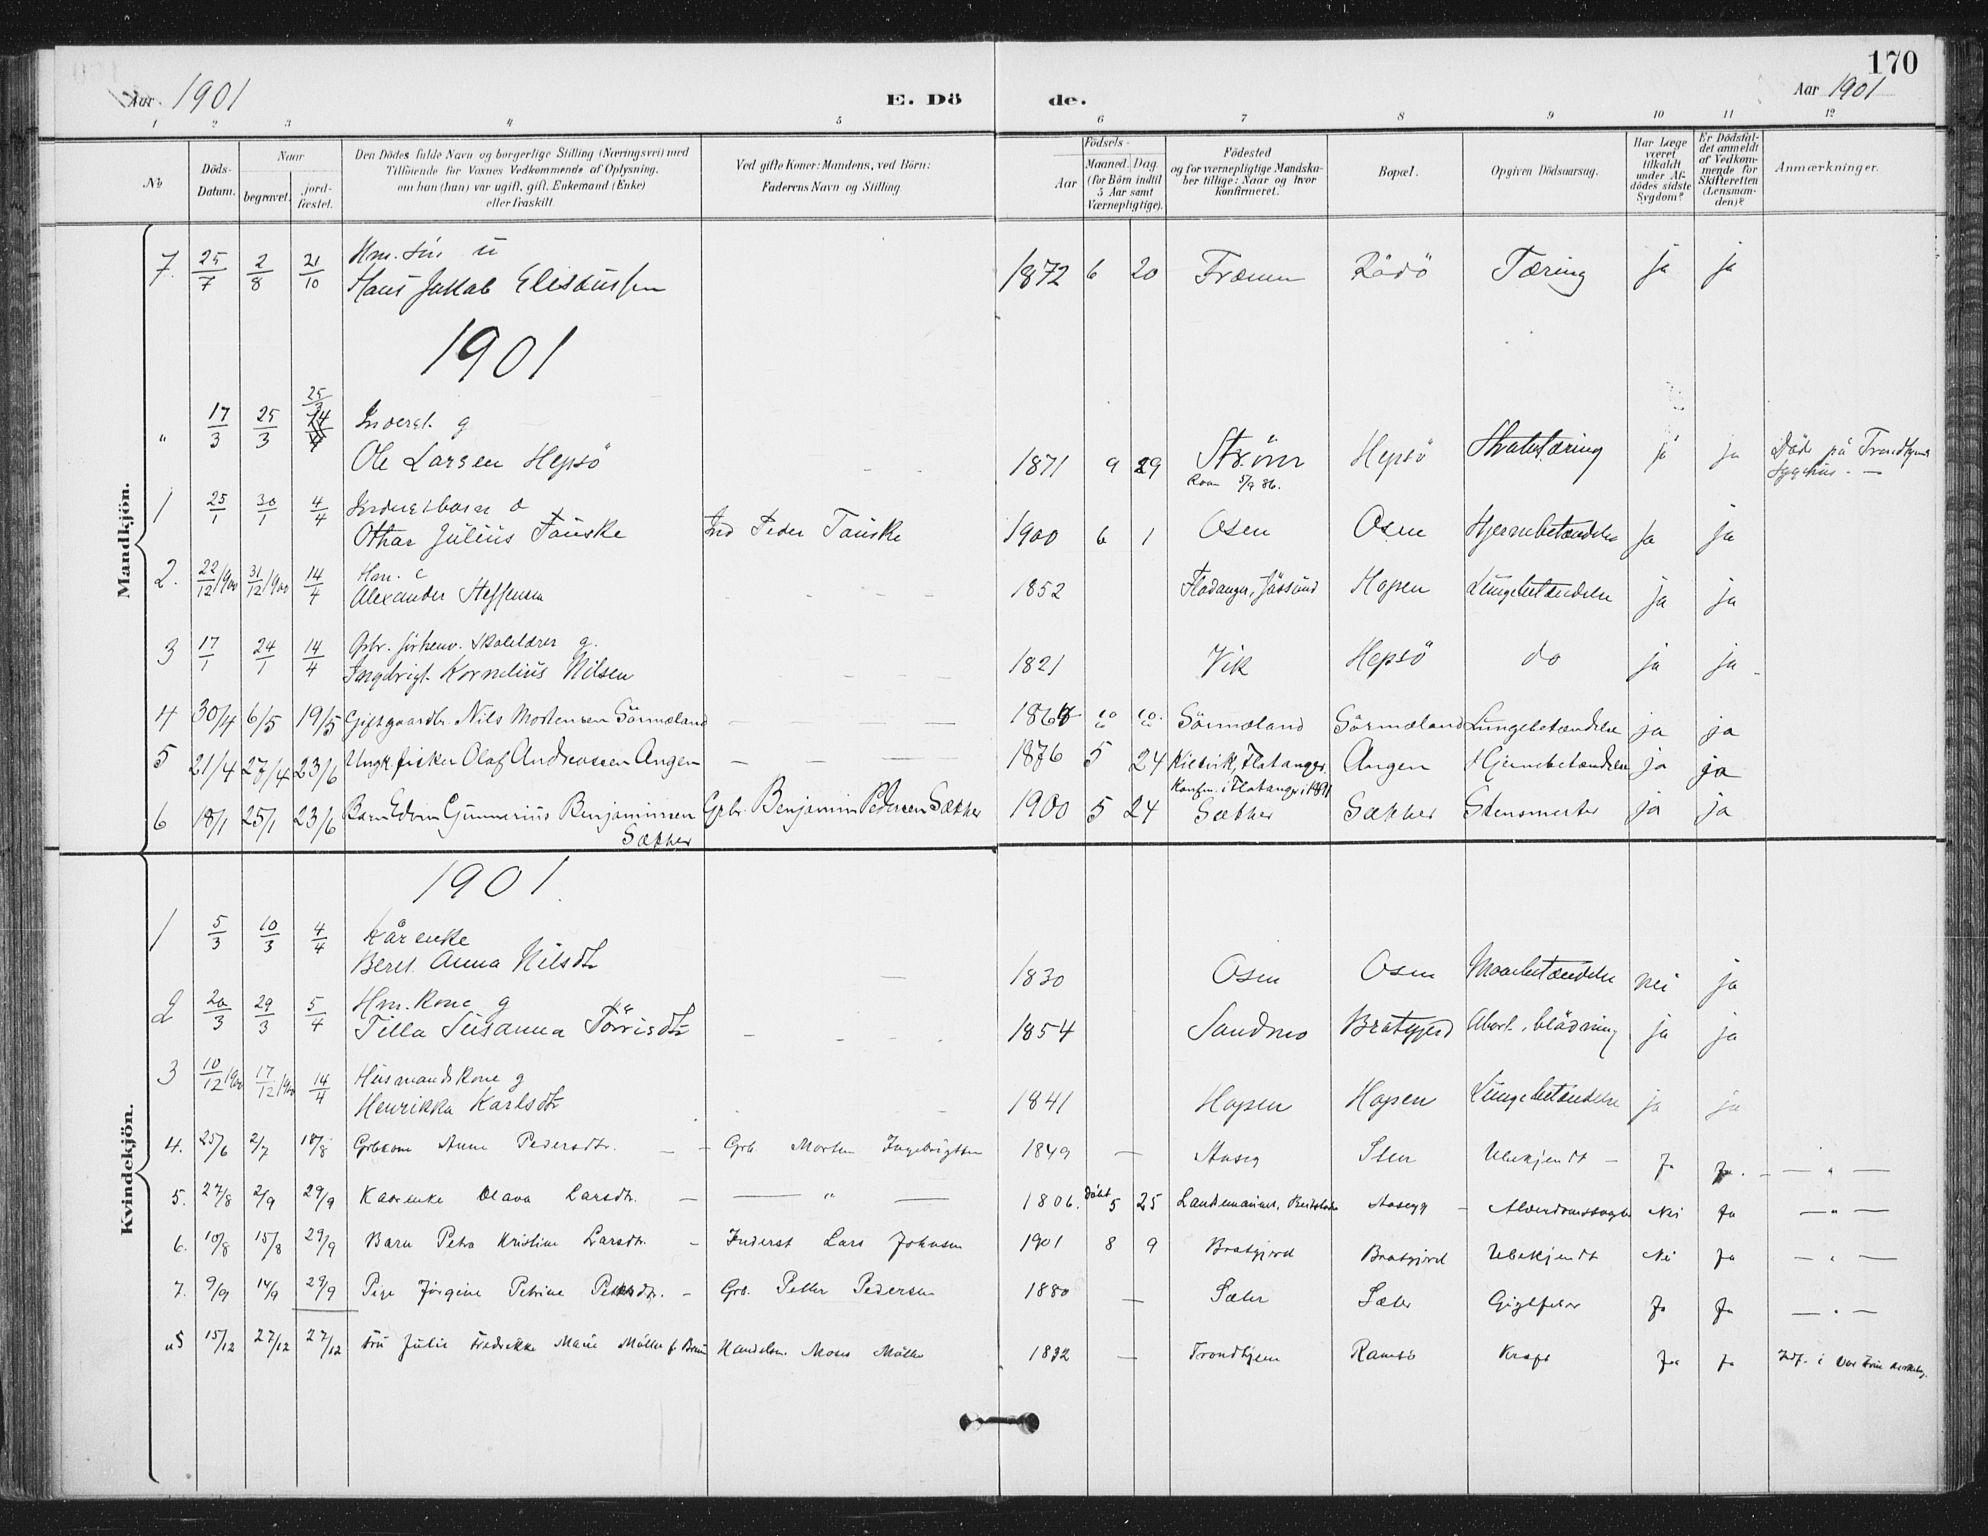 170
Aar 1901
E. Dö
de.
Aar 1901
1 2 3 4 5 6 7 8 9 10 11 12
No
Döds-Datum.
Naar
begravet.
jord-fæstet.
Den Dödes fulde Navn og borgerlige Stilling (Næringsvei) med
Tilföiende for Voxnes Vedkommende af Oplysning,
om han (hun) var ugift, gift, Enkemand (Enke)
eller fraskilt.
Ved gifte Koner: Mandens, ved Börn:
Faderens Navn og Stilling.
Födsels-
Aar
Maaned. Dag.
(for Börn indtil
5 Aar samt
Værnepligtige).
Födested
og for værnepligtige Mandska-
ber tillige: Naar og hvor
konfirmeret.
Bopæl.
Opgiven Dödsaarsag.
Har Læge
været
tilkaldt
under Af-
dödes sidste
Sygdom?
Er Dödsfal-
det anmeldt
af Vedkom-
mende for
Skifteretten
(Lensman-
den)?
Anmærkninger.
Mandkjön.
7. 25/7 2/8 21/10 Hm. sön u
Hans Jakob Eliseussen 1872 6 20 Rådö Tæring ja ja
1901
" 17/3 25/3 25/3 Inderst. g
Ole Larsen Hepsö 1871 9 29 Ström Hepsö ja ja Död på Trondhjems
Sygehus. —
5/9 86.
1 25/1 30/1 4/4 Inderstbarn
Othar Julius Fauske Ind Peder Fauske 1900 6 1 Osen Osen Hjernebetændelse ja ja
2. 22/12 1900 31/12 1900 14/4 Hm. e
Alexander Steffensen 1852 Fladanger, Jössund Hopen Lungebetændelse ja ja
3 17/1 24/1 14/4 Gbr. forhenv. Skolelærer g.
Ingebrigt Kornelius Nilsen 1821 Vik Hepsö do ja ja
4 30/4 6/5 19/5 Gift gaardbr. Nils Mortensen Sörmæland — — — 10 10. Sörmæland Sörmæland Lungebetændelse ja ja
5 21/4 27/4 23/6 Ungk. fisker Olaf Andreassen Angen — — — 1876 5 24 Flatanger. Angen Hjernebetændelse ja ja
Konfm. i Flatanger i 1891
6 18/1 25/1 23/6 Barn Edvin Gunnerius Benjaminsen Gbr. Benjamin Pedersen Sæther 1900 5 24 Sæther Sæther Stensmerter ja ja
Sæther
Kvindekjön.
1901.
1 5/3 10/3 4/4 Kårenke
Beret Anna Nilsdtr 1830 Osen Osen nei ja
2 20/3 29/3 5/4 Hm. Kone g
Tilla Susanna Törrisdtr 1854 Sandmo Bratgjerd Abort, blödning ja ja
3 10/12 1900 17/12 1900 14/4 Husmandskone g
Henrikka Karlsdtr 1841 Hopen Hopen Lungebetændelse ja ja
4. 25/6 2/7 18/8 Gbkone Anne Pedersdtr. — — Grb Morten Ingebrigtsen 1849 — Aaseg Sten Ubekjendt — Ja Ja — — " —
5. 27/8 2/9 29/9 Kaarenke Olava Larsdtr. — — " — 1806. döbt 5 25 Aasegg Alderdomssvaghed Nei Ja — " —
6. 10/8 15/8 29/9 Barn Petra Kristine Larsdtr. — Inderst Lars Johnsen 1901 8 9 Bratgjerd Bratgjerd Ubekjendt Nei Ja — " —
7. 9/9 14/9 29/9 Pige Jörgine Petrine Pettersdtr. — Grb. Petter Pedersen 1880 — Sæter Sæter Gigtfeber Ja Ja — " —
15/12 27/12 27/12 Fru Julie Fredrikke Marie Möller f. Brun Handelsm. Moses Möller 1832 — Trondhjem Ramsö Kræft Ja Ja Jdf. i Vor Frue Kirke